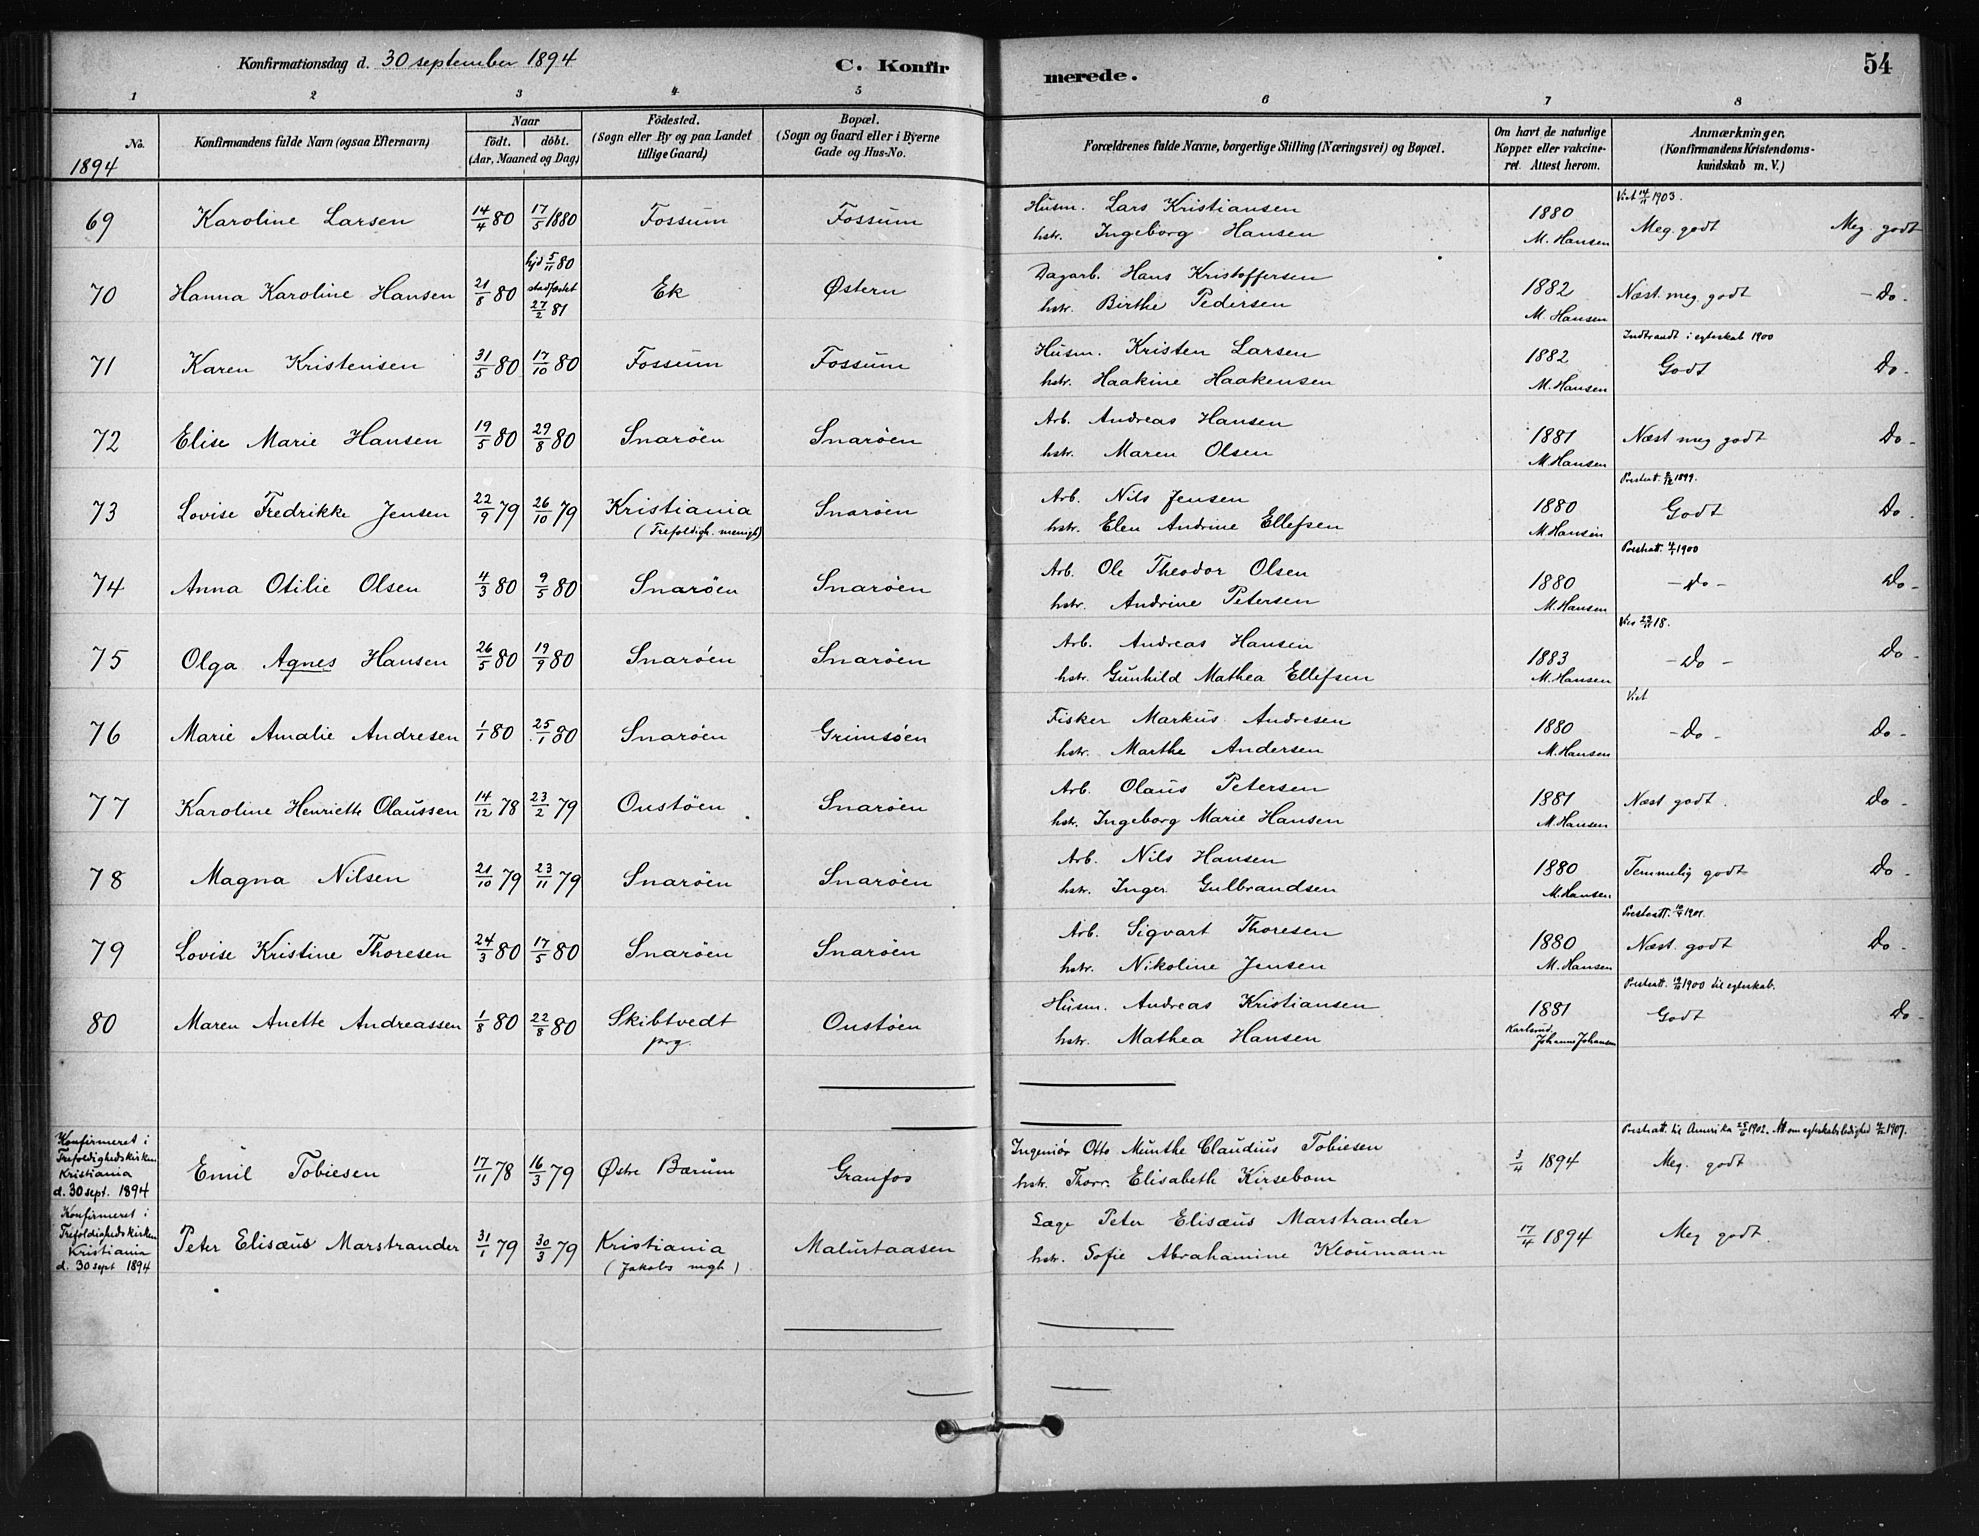 Konfirmationsdag d. 30 september 1894 C. Konfir merede. 54
1 2 3 4 5 6 7 8
No. 1894
Konfirmandens fulde Navn (ogsaa Efternavn)
Naar
födt. döbt.
(Aar, Maaned og Dag)
Födested.
(Sogn eller By og paa Landet
tillige Gaard)
Bopæl.
(Sogn og Gaard eller i Byerne
Gade og Hus-No.
Forældrenes fulde Navne, borgerlige Stilling (Næringsvei) og Bopæl.
Om havt de naturlige
Kopper eller vakcine-
ret. Attest herom.
Anmærkninger.
(Konfirmandens Kristendoms-
kundskab m. V.)
Viet 14/11 1903.
69 Karoline Larsen 14/4 80 17/5 1880 Fossum Fossum Husm. Lars Kristiansen 1880 Meg. godt Meg. godt
hstr. Ingeborg Hansen M. Hansen
hjd 5/11 80
70 Hanna Karoline Hansen 21/8 80 stadfæstet Ek Østern Dagarb. Hans Kristoffersen 1882 Næst. meg. godt - Do -
27/2 81 hstr. Birthe Pedersen M. Hansen
Indtraadt i egteskab 1900
71 Karen Kristensen 31/5 80 17/10 80 Fossum Fossum Husm. Kristen Larsen 1882 Godt Do -
hstr. Haakine Haakensen M. Hansen
72 Elise Marie Hansen 19/5 80 29/8 80 Snarøen Snarøen Arb. Andreas Hansen 1881 Næst meg godt Do -
hstr. Maren Olsen M. Hansen
1899.
73 Lovise Fredrikke Jensen 22/9 79 26/10 79 Kristiania Snarøen Arb. Nils Jensen 1880 Godt Do.
(Trefoldigh. menigh) hstr. Elen Andrine Ellefsen M. Hansen
1900
74 Anna Otilie Olsen 4/3 80 9/5 80 Snarøen Snarøen Arb. Ole Theodor Olsen 1880 - Do - Do -
hstr. Andrine Petersen M. Hansen
18.
75 Olga Agnes Hansen 26/5 80 19/9 80 Snarøen Snarøen Arb. Andreas Hansen 1883 - Do - Do -
hstr. Gunhild Mathea Ellefsen M. Hansen
Viet
76 Marie Amalie Andresen 1/1 80 25/1 80 Snarøen Grimsøen Fisker Markus Andresen 1880 - Do - Do -
hstr. Marthe Andersen M. Hansen
77 Karoline Henriette Olaussen 14/12 78 23/2 79 Oustøen Snarøen Arb. Olaus Petersen 1881 Næst godt. Do -
hstr. Ingeborg Marie Hansen M. Hansen
78 Magna Nilsen 21/10 79 23/11 79 Snarøen Snarøen Arb. Nils Hansen 1880 Temmelig godt Do -
hstr. Inger Gulbrandsen M. Hansen
1901.
79 Lovise Kristine Thoresen 24/3 80 17/5 80 Snarøen Snarøen Arb. Sigvart Thoresen 1880 Næst. godt Do -
hstr. Nikoline Jensen M. Hansen
1900 til egteskab.
80 Maren Anette Andreassen 1/8 80 22/8 80 Skibtvedt Oustøen Husm. Andreas Kristiansen 1881 Godt Do -
prg. hstr. Mathea Hansen Karlsrud.
Johanne Johansen
Konfirmeret i
Trefoldighedskirken
Kristiania
d. 30 sept. 1894
Emil Tobiesen 17/11 78 16/3 79 Østre Bærum Granfos Ingeniør Otto Munthe Claudius Tobiesen 3/4 1894 Meg. godt
hstr. Thorr. Elisabeth Kirsebom
Prestatt. til Amerika 25/6 1902. Att om egteskabsledighed 1907.
Konfirmeret i
Trefoldighedskirken
Kristiania
d. 30 sept 1894
Peter Elisæus Marstrander 31/1 79 30/3 79 Kristiania Malurtaasen Læge Peter Elisæus Marstrander 17/4 1894 Meg godt.
(Jakobs mgh) hstr. Sofie Abrahamine Kloumann